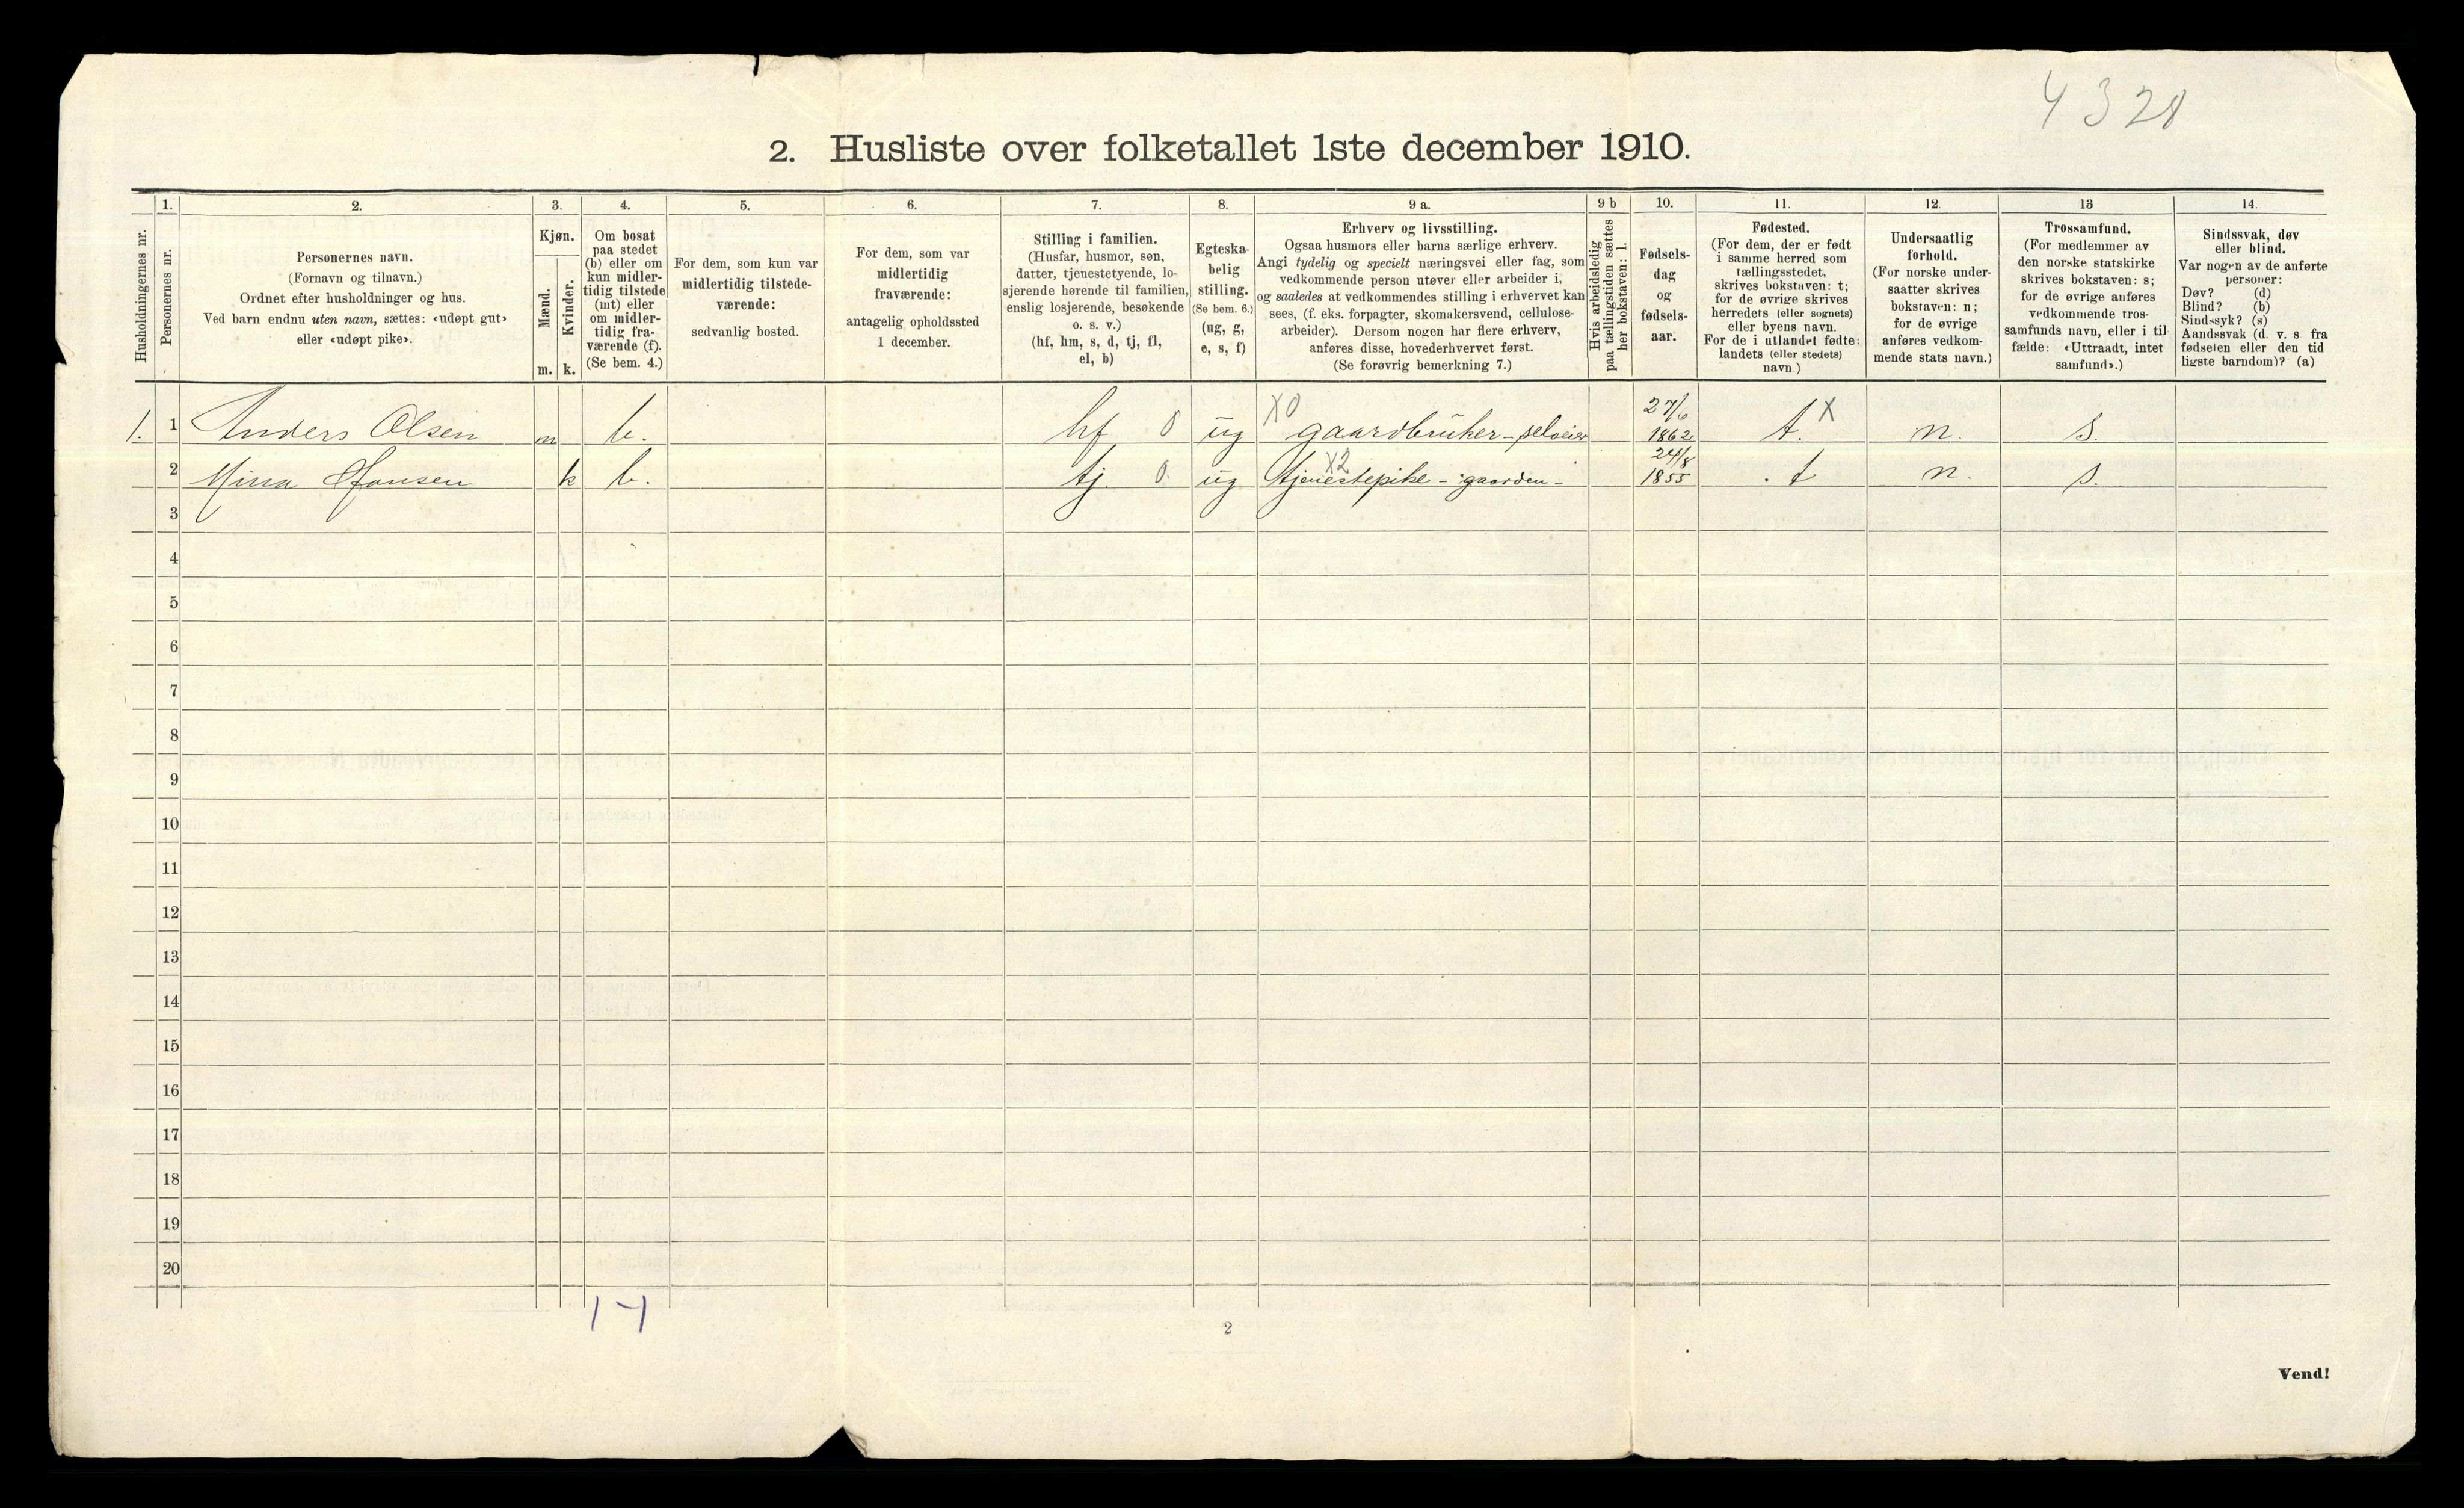 4328
2. Husliste over folketallet 1ste december 1910.
Husholdningernes nr.
1.
Personernes nr.
2.
Personernes navn.
(Fornavn og tilnavn.)
Ordnet efter husholdninger og hus.
Ved barn endnu uten navn, sættes: «udøpt gut»
eller «udøpt pike».
3.
Kjøn.
Mænd.
Kvinder.
m. k.
4.
Om bosat
paa stedet
(b) eller om
kun midler-
tidig tilstede
(mt) eller
om midler-
tidig fra-
værende (f).
(Se bem. 4.)
5.
For dem, som kun var
midlertidig tilstede-
værende:
sedvanlig bosted.
6.
For dem, som var
midlertidig
fraværende:
antagelig opholdssted
1 december.
7.
Stilling i familien.
(Husfar, husmor, søn,
datter, tjenestetyende, lo-
sjerende hørende til familien,
enslig losjerende, besøkende
o. s. v.)
(hf, hm, s, d, tj, fl,
el, b)
8.
Egteska-
belig
stilling.
(Se bem. 6.)
(ug, g,
e, s, f)
9 a.
Erhverv og livsstilling.
Ogsaa husmors eller barns særlige erhverv.
Angi tydelig og specielt næringsvei eller fag, som
vedkommende person utøver eller arbeider i,
og saaledes at vedkommendes stilling i erhvervet kan
sees, (f. eks. forpagter, skomakersvend, cellulose-
arbeider). Dersom nogen har flere erhverv,
anføres disse, hovederhvervet først.
(Se forøvrig bemerkning 7.)
9 b
Hvis arbeidsledig
paa tællingstiden sættes
her bokstaven: l.
10.
Fødsels-
dag
og
fødsels-
aar.
11.
Fødested.
(For dem, der er født
i samme herred som
tællingsstedet,
skrives bokstaven: t;
for de øvrige skrives
herredets (eller sognets)
eller byens navn.
For de i utlandet fødte:
landets (eller stedets)
navn.)
12.
Undersaatlig
forhold.
(For norske under-
saatter skrives
bokstaven: n;
for de øvrige
anføres vedkom-
mende stats navn.)
13
Trossamfund.
(For medlemmer av
den norske statskirke
skrives bokstaven: s;
for de øvrige anføres
vedkommende tros-
samfunds navn, eller i til
fælde: «Uttraadt, intet
samfund».)
14.
Sindssvak, døv
eller blind.
Var nogen av de anførte
personer:
Døv? (d)
Blind? (b)
Sindssyk? (s)
Aandssvak (d. v. s fra
fødselen eller den tid
ligste barndom)? (a)
1. 1 Anders Olsen m b. hf 0 ug X0 gaardbruker - selveier 27/6 1862 t. X n. s.
2 Mina Hansen k b. tj. 0. ug X2 tjenestepike - gaarden - 24/8 1855 t n. s.
3
4
5
6
7
8
9
10
11
12
13
14
15
16
17
18
19
20
2
Vend!